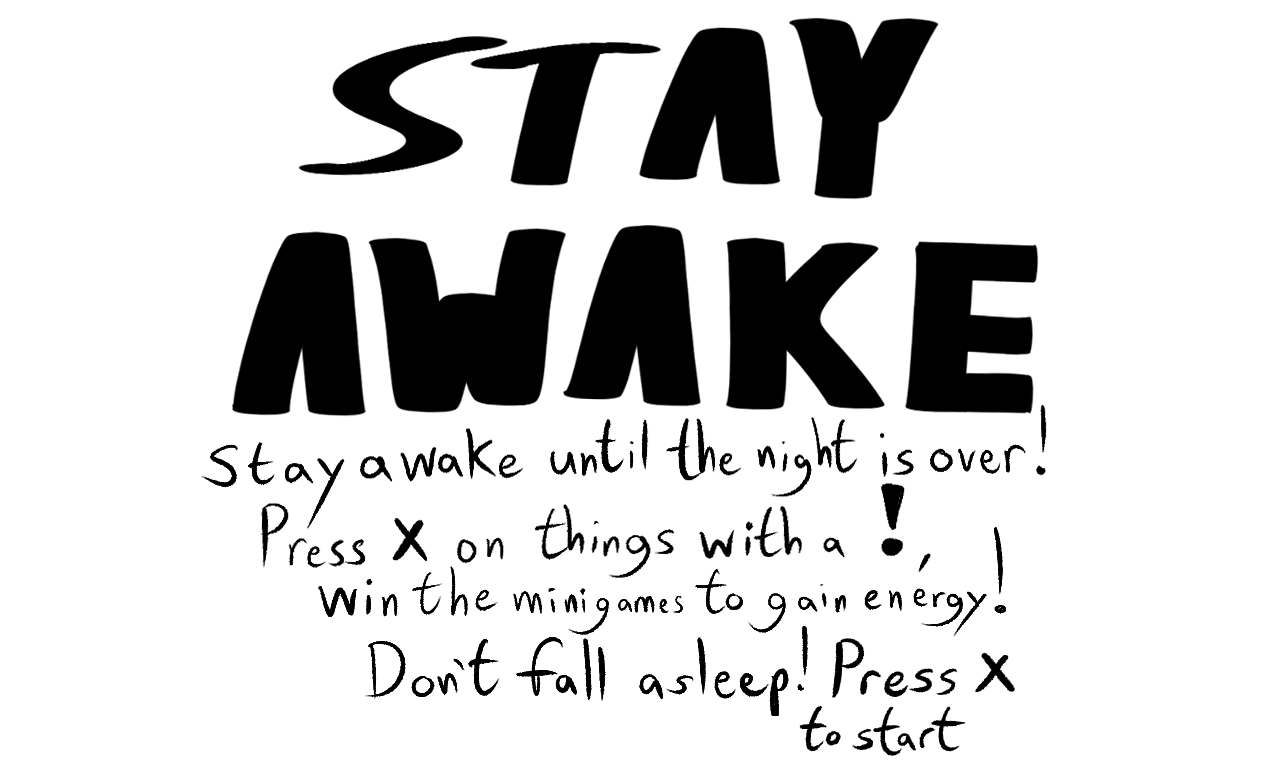 STAY
AWAKE
Stay awake until the night is over!
Press X on things with a !,
win the minigames to gain energy!
Don't fall asleep! Press X
to start